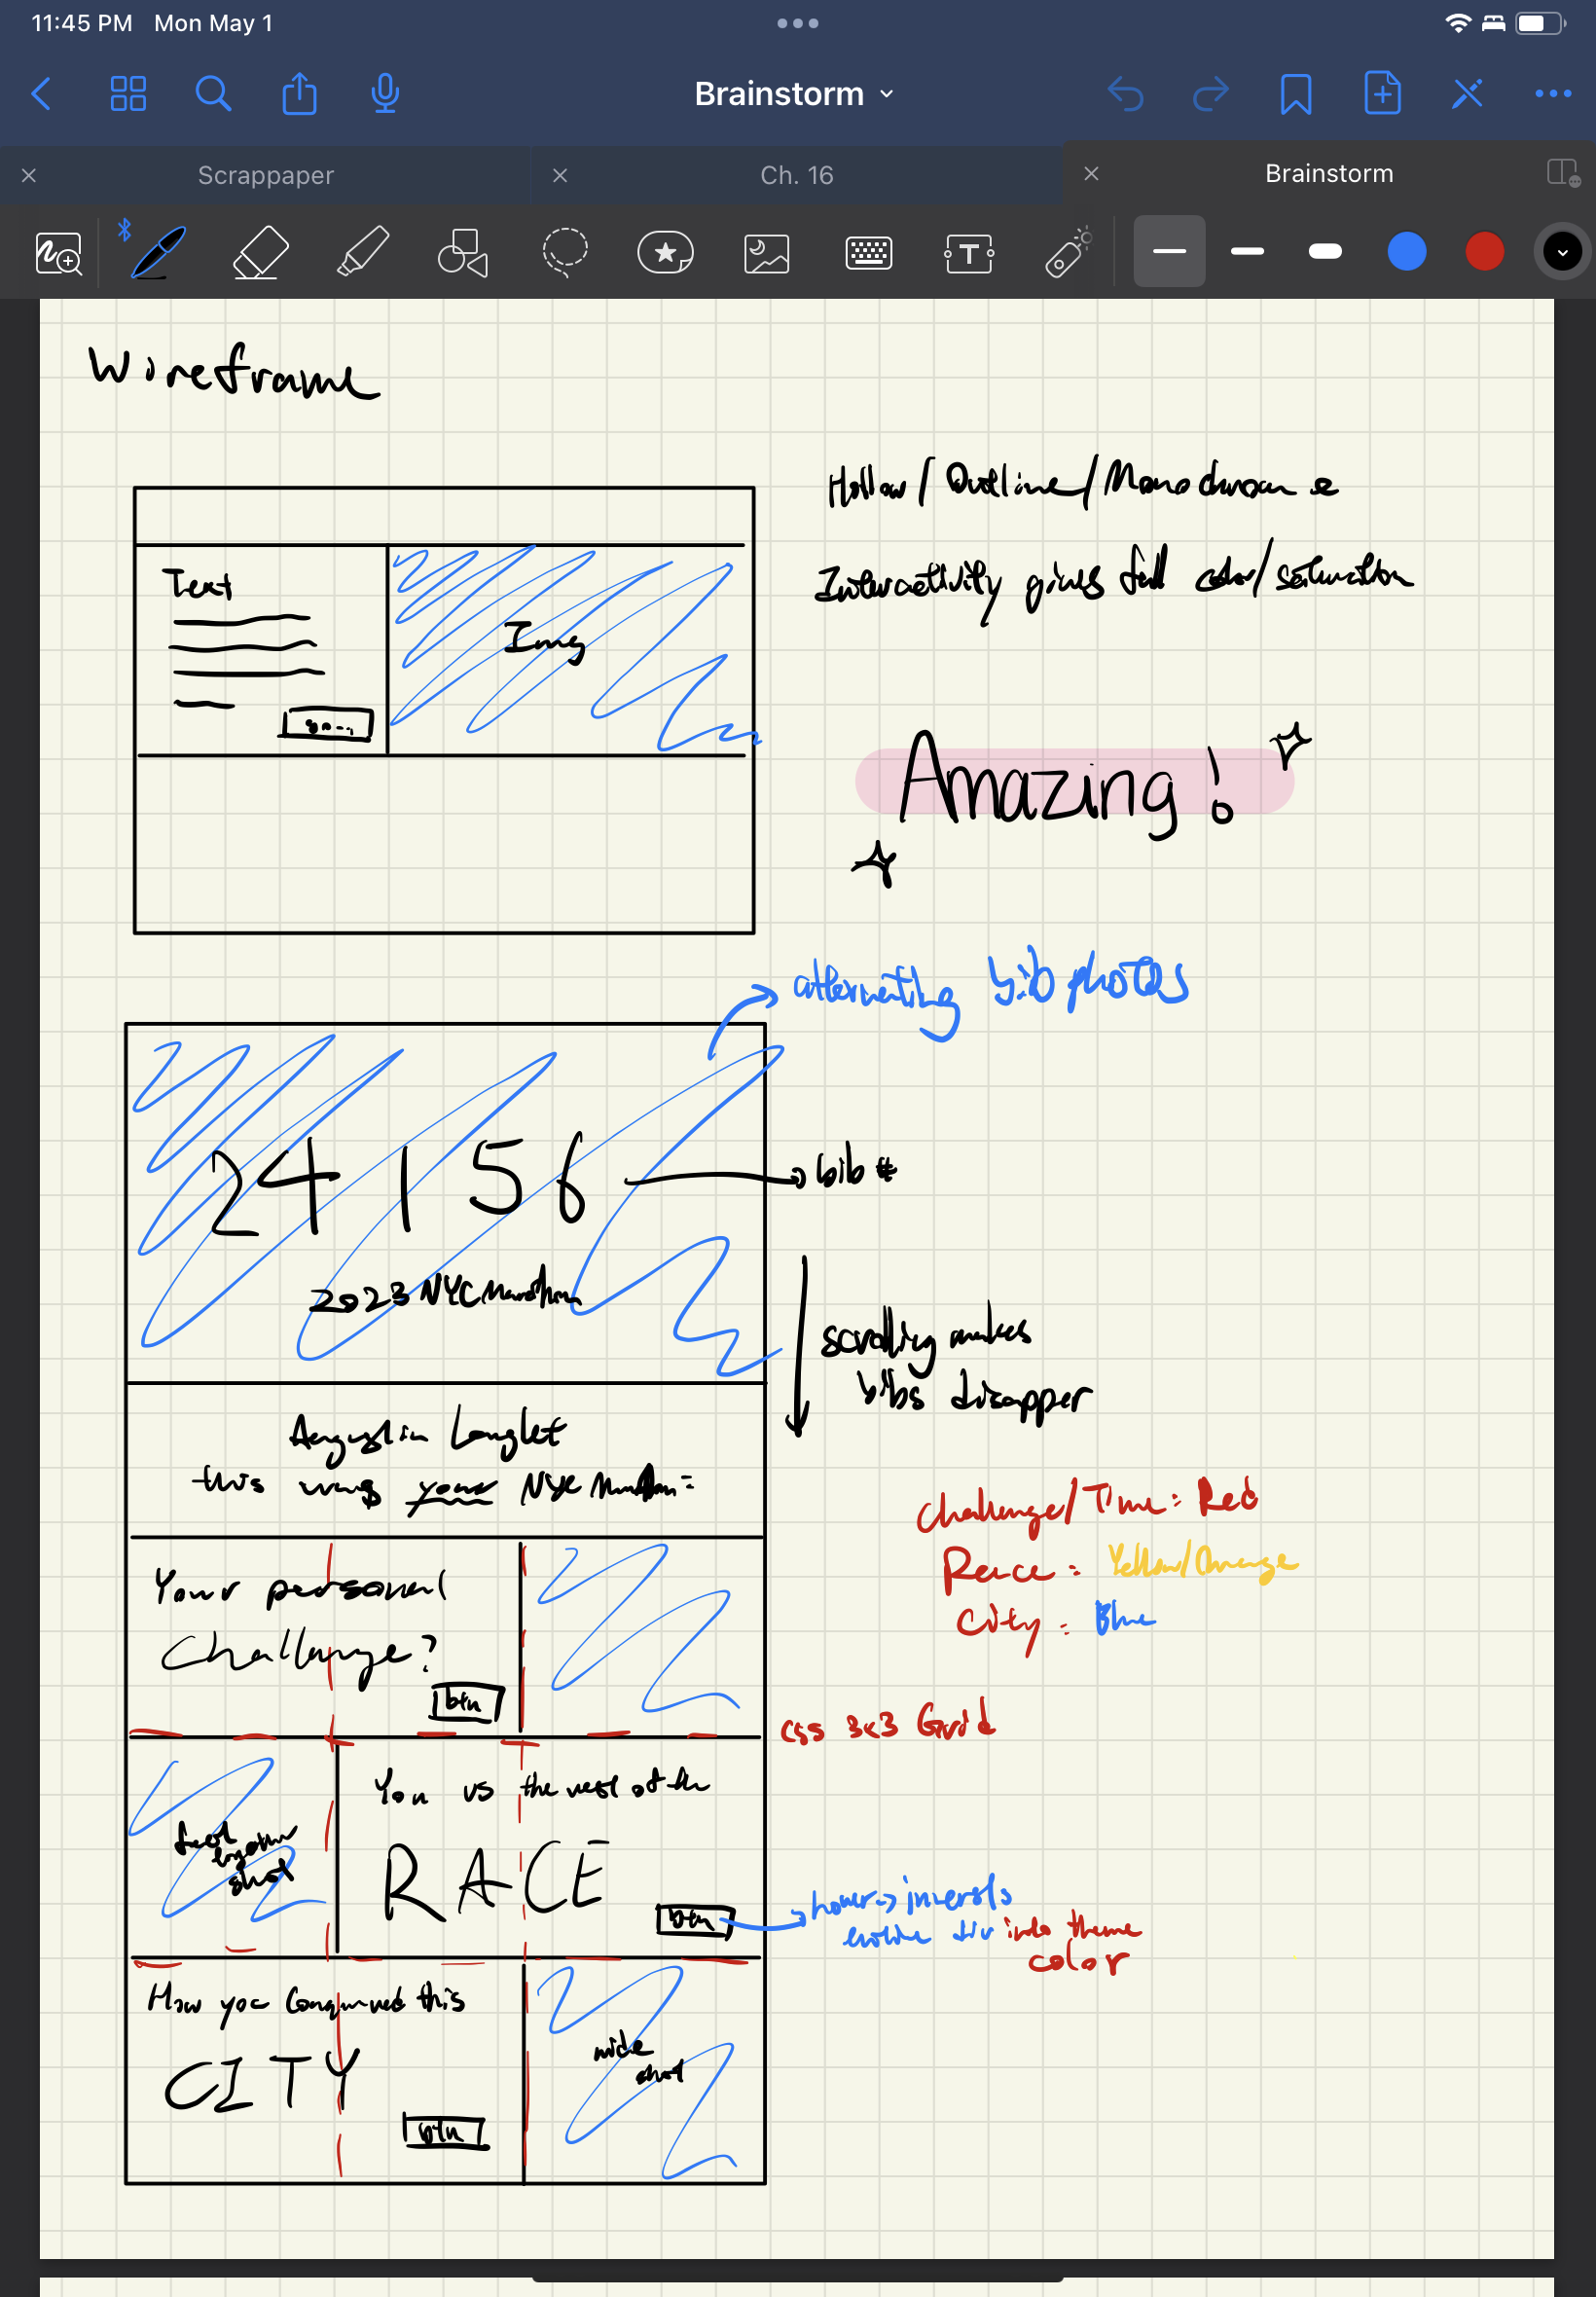 11:45 PM Mon May 1
Brainstorm
Scrappaper
Ch. 16
Brainstorm
T
Wireframe
Hollow/Outline/Monochrome
Text
Img
Interactivity gives full color/saturation
Amazing!
alternating bib photos
24156
bib #
2023 NYC Marathon
scrolling makes
bibs disapper
Langlet
this was your NYC Marathon:
Challenge/Time: Red
Race: Yellow/Orange
City: Blue
Your personal
Challenge?
btn
css 3x3 Grid
You vs the rest of the
RACE
shot
btn
hover → inverts
entire div into theme
color
How you Conquered this
CITY
wide
shot
btn